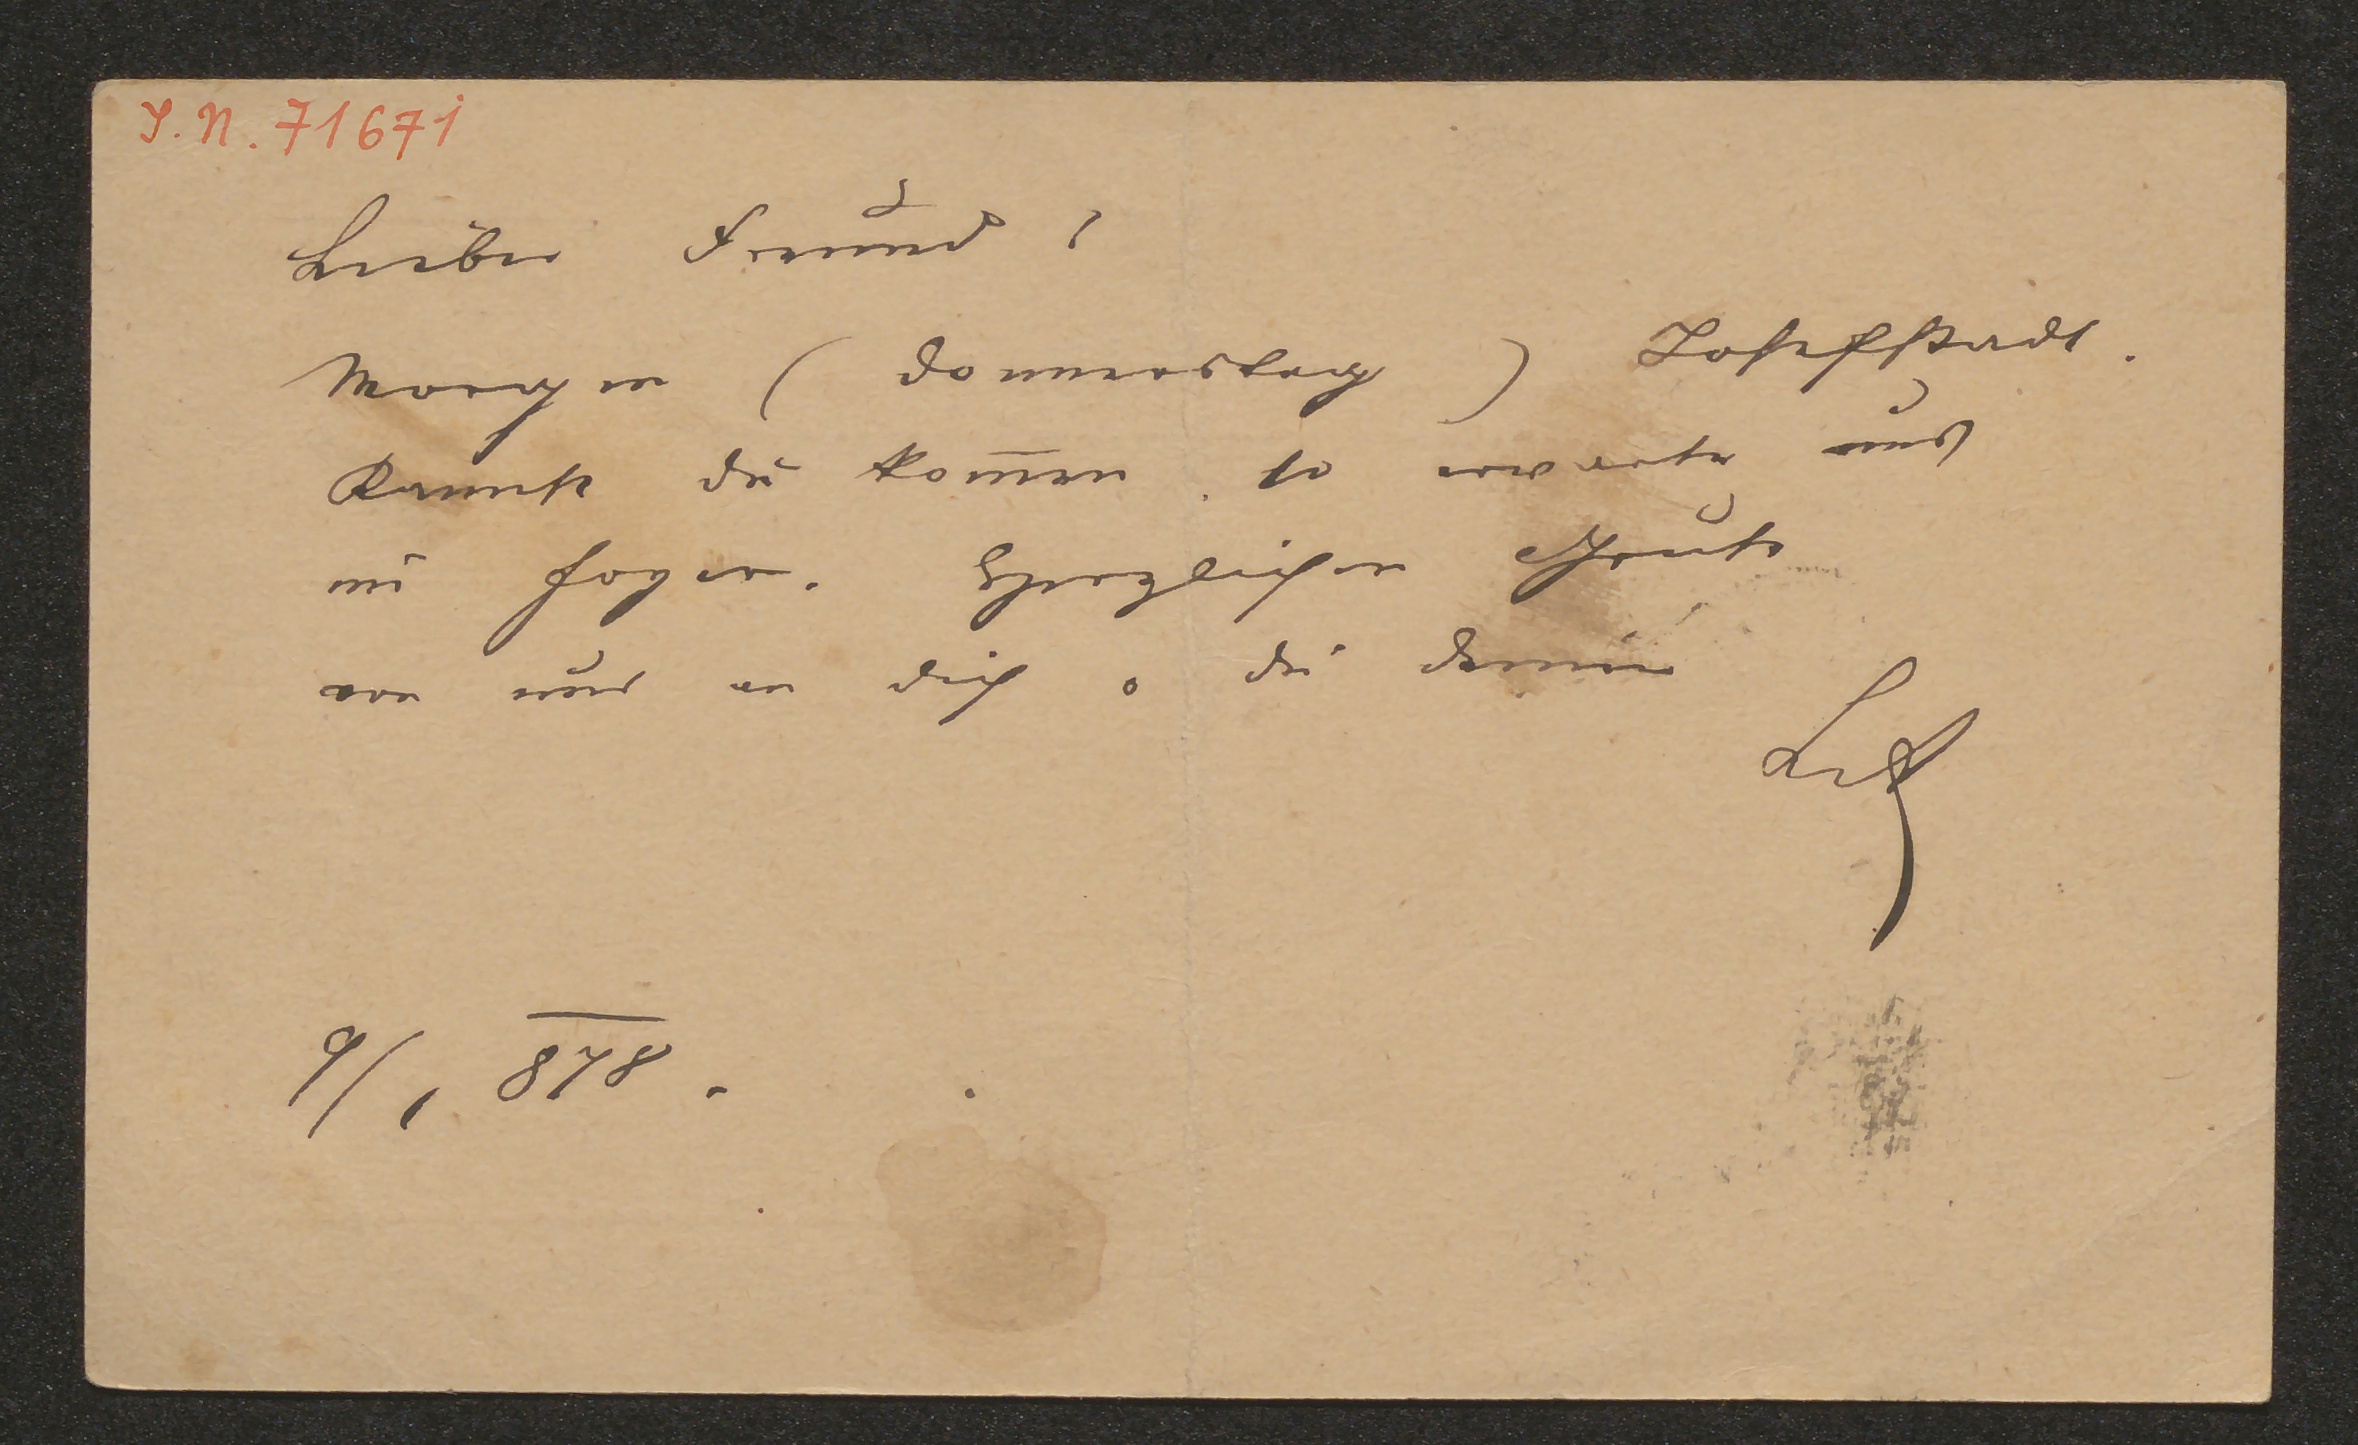 J. N. 71671
Lieber Freund!
Morgen (Donnerstag) Josefstadt.
Kannst du kom̄en, so erwarte uns
im Foyer. Herzlichen Gruß
von uns an dich die Deinen
9/1 878.